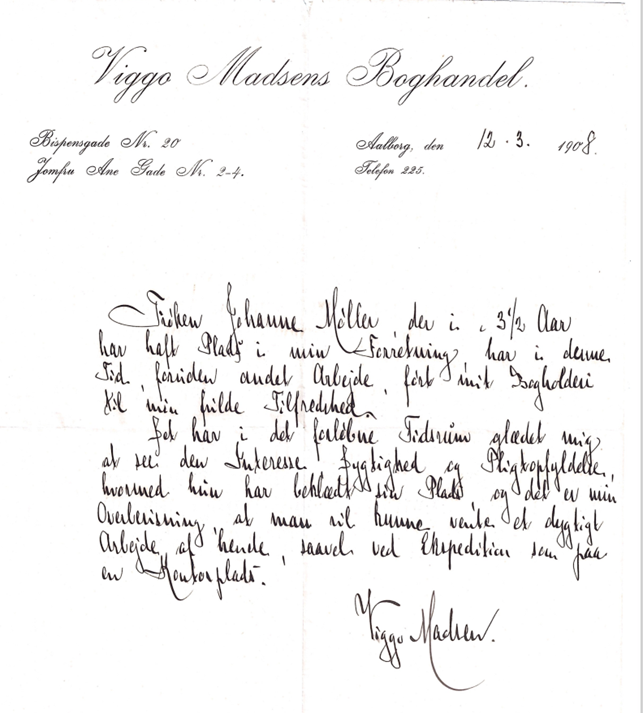 Viggo Madsens Boghandel.
Bispensgade Nr. 20
Jomfru Ane Gade Nr. 2-4.
Aalborg, den 12 . 3. 1908.
Telefon 225.
Fröken Johanne Möller, der i c 3½ Aar
har haft Plads i min Forretning, har i denne
Tid, foruden andet Arbejde, fört mit Bogholderi
til min fulde Tilfredshed.
Det har i det forløbne Tidsrum glædet mig
at see den Interesse, Dygtighed og Pligtopfyldelse,
hvormed hun har beklædt sin Plads, og det er min
Overbevisning, at man vil kunne vente et dygtigt
Arbejde af hende, saavel ved Ekspedition som paa
en Kontorplads.
Viggo Madsen.